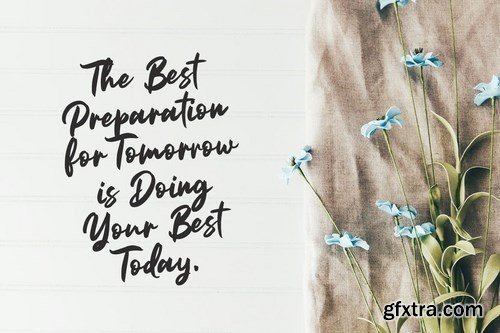 The Best
Preparation
for Tomorrow
is Doing
Your Best
Today.
gfxtra.com